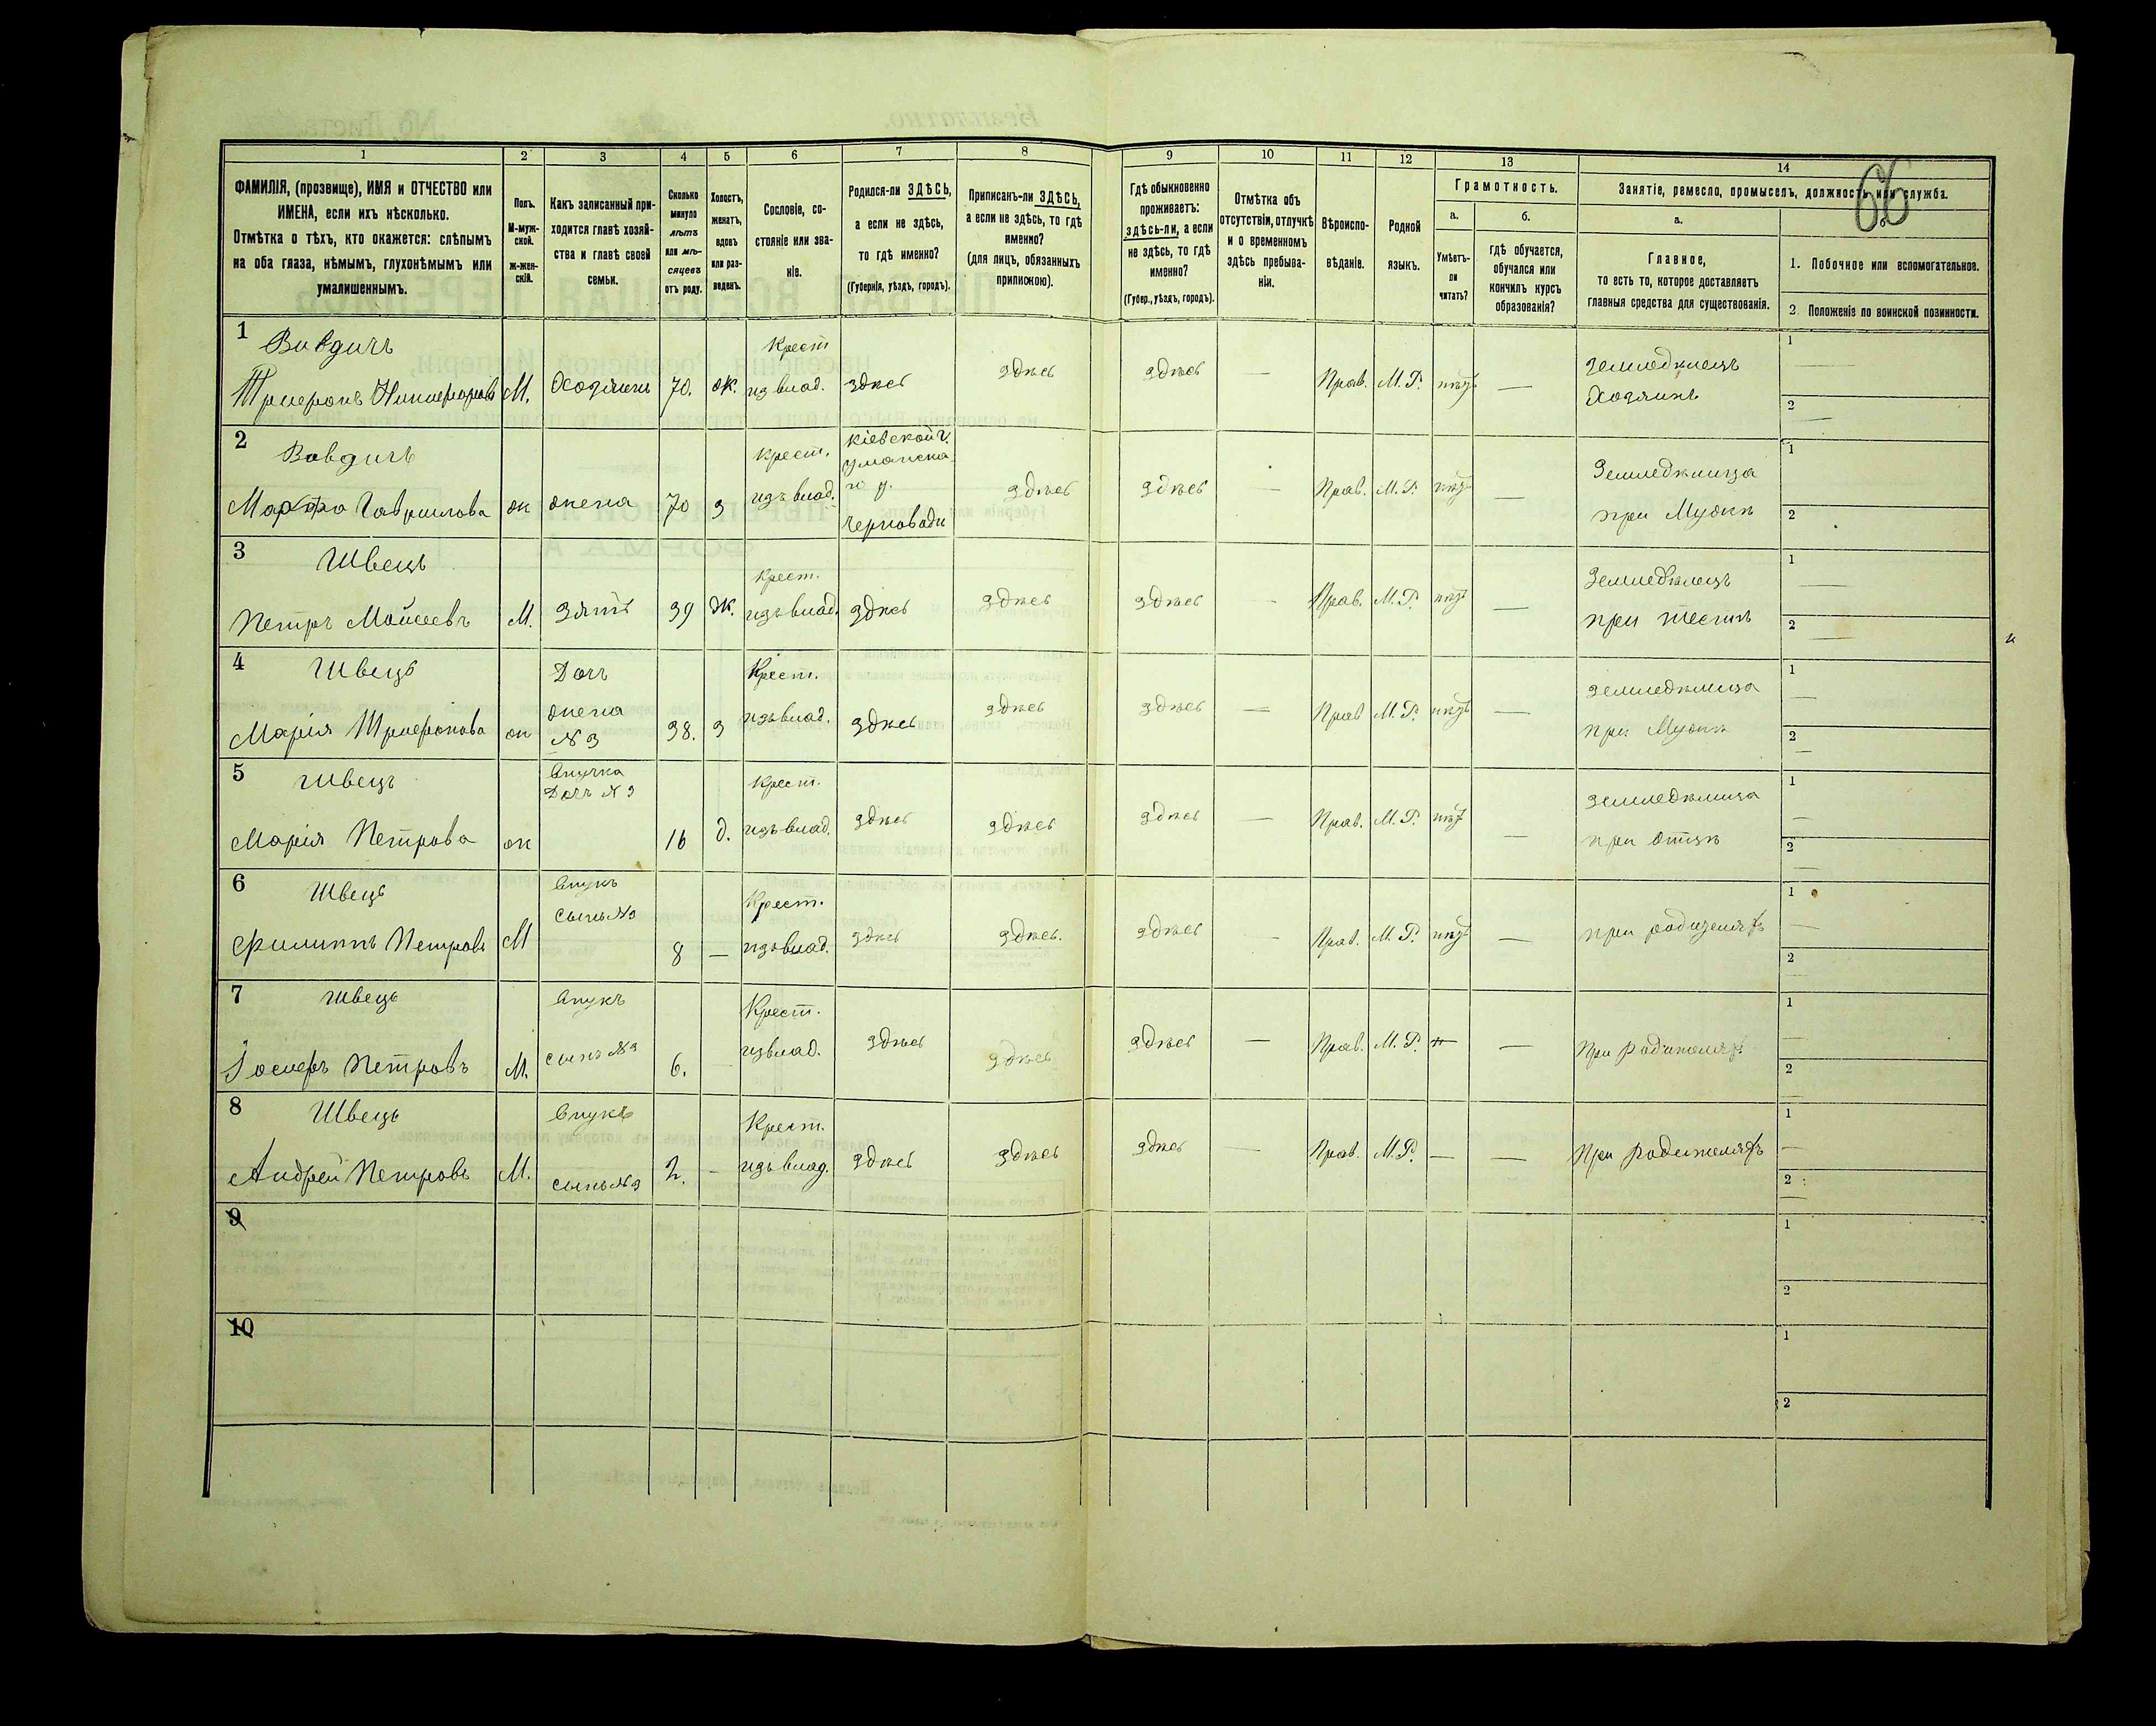 66
1 2 3 4 5 6 7 8 9 10 11 12 13 14
ФАМИЛІЯ, (прозвище), ИМЯ и ОТЧЕСТВО или
ИМЕНА, если ихъ нѣсколько.
Отмѣтка о тѣхъ, кто окажется: слѣпымъ
на оба глаза, нѣмымъ, глухонѣмымъ или
умалишеннымъ.
Полъ.
М-муж-
ской.
ж-жен-
скій.
Какъ записанный при-
ходится главѣ хозяй-
ства и главѣ своей
семьи.
Сколько
минуло
лѣтъ
или мѣ-
сяцевъ
отъ роду.
Холостъ,
женатъ,
вдовъ
или раз-
веденъ.
Сословіе, со-
стояніе или зва-
ніе.
Родился-ли ЗДѢСЬ,
а если не здѣсь,
то гдѣ именно?
(Губернія, уѣздъ, городъ).
Приписанъ-ли ЗДѢСЬ,
а если не здѣсь, то гдѣ
именно?
(для лицъ, обязанныхъ
припискою).
Гдѣ обыкновенно
проживаетъ:
здѣсь-ли, а если
не здѣсь, то гдѣ
именно?
(Губер., уѣздъ, городъ).
Отмѣтка объ
отсутствіи, отлучкѣ
и о временномъ
здѣсь пребыва-
ніи.
Вѣроиспо-
вѣданіе.
Родной
языкъ.
Грамотность.
а.
Умѣетъ-
ли
читать?
б.
гдѣ обучается,
обучался или
кончилъ курсъ
образованія?
Занятіе, ремесло, промыселъ, должность или служба.
а.
Главное,
то есть то, которое доставляетъ
главныя средства для существованія.
1. Побочное или вспомогательное.
2 Положеніе по воинской повинности.
1 Вовдичъ
Трифонъ Никифоровъ М. Хозяинъ 70. ж. Крест
из влад. здѣсь здѣсь здѣсь — Прав. М. Р. нѣтъ — Земледѣлецъ
Хозяинъ
1 —
2 —
2 Вовдичъ
Марфа Гаврилова ж жена 70 з крест.
изъ влад. Кіевской г.
Уманска
го у.
Черноводи здѣсь здѣсь — Прав. М. Р. нѣтъ — Земледѣлица
при Мужѣ
1
2
3 Швецъ
Петръ Мойсеевъ М. Зять 39 Ж. крест.
изъ влад. здѣсь здѣсь здѣсь Прав. М. Р. нѣтъ — Земледѣлецъ
при тестѣ
1 —
2 —
4 Швецъ
Марія Трифонова ж Дочъ
жена
№ 3 38. з Крест.
изъ влад. здѣсь здѣсь здѣсь — Прав М. Р. нѣтъ — земледѣлица
при Мужѣ
1 —
2 —
5 Швецъ
Марія Петрова ж Внучка
Дочъ № 3 16 д. крест.
изъ влад. здѣсь здѣсь здѣсь — Прав. М. Р. нѣтъ — земледѣлица
при отцѣ
1 —
2 —
6 Швецъ
Филиппъ Петровъ М Внукъ
сынъ №3 8 — Крест.
изъ влад. здѣсь здѣсь. здѣсь - Прав. М. Р. нѣтъ — при родителяхъ
1 —
2 —
7 Швецъ
Іосифъ Петровъ М. Внукъ
сынъ №3 6. Крест.
из влад. здѣсь здѣсь здѣсь — Прав. М. Р. — При родителяхъ
1 —
2 —
8 Швецъ
Андрей Петровъ М. Внукъ
сынъ №3 2. — Крест.
изъ влад. здѣсь здѣсь здѣсь — Прав. М. Р. — — При родителяхъ
1 —
2 —
9
1
2
10
1
2